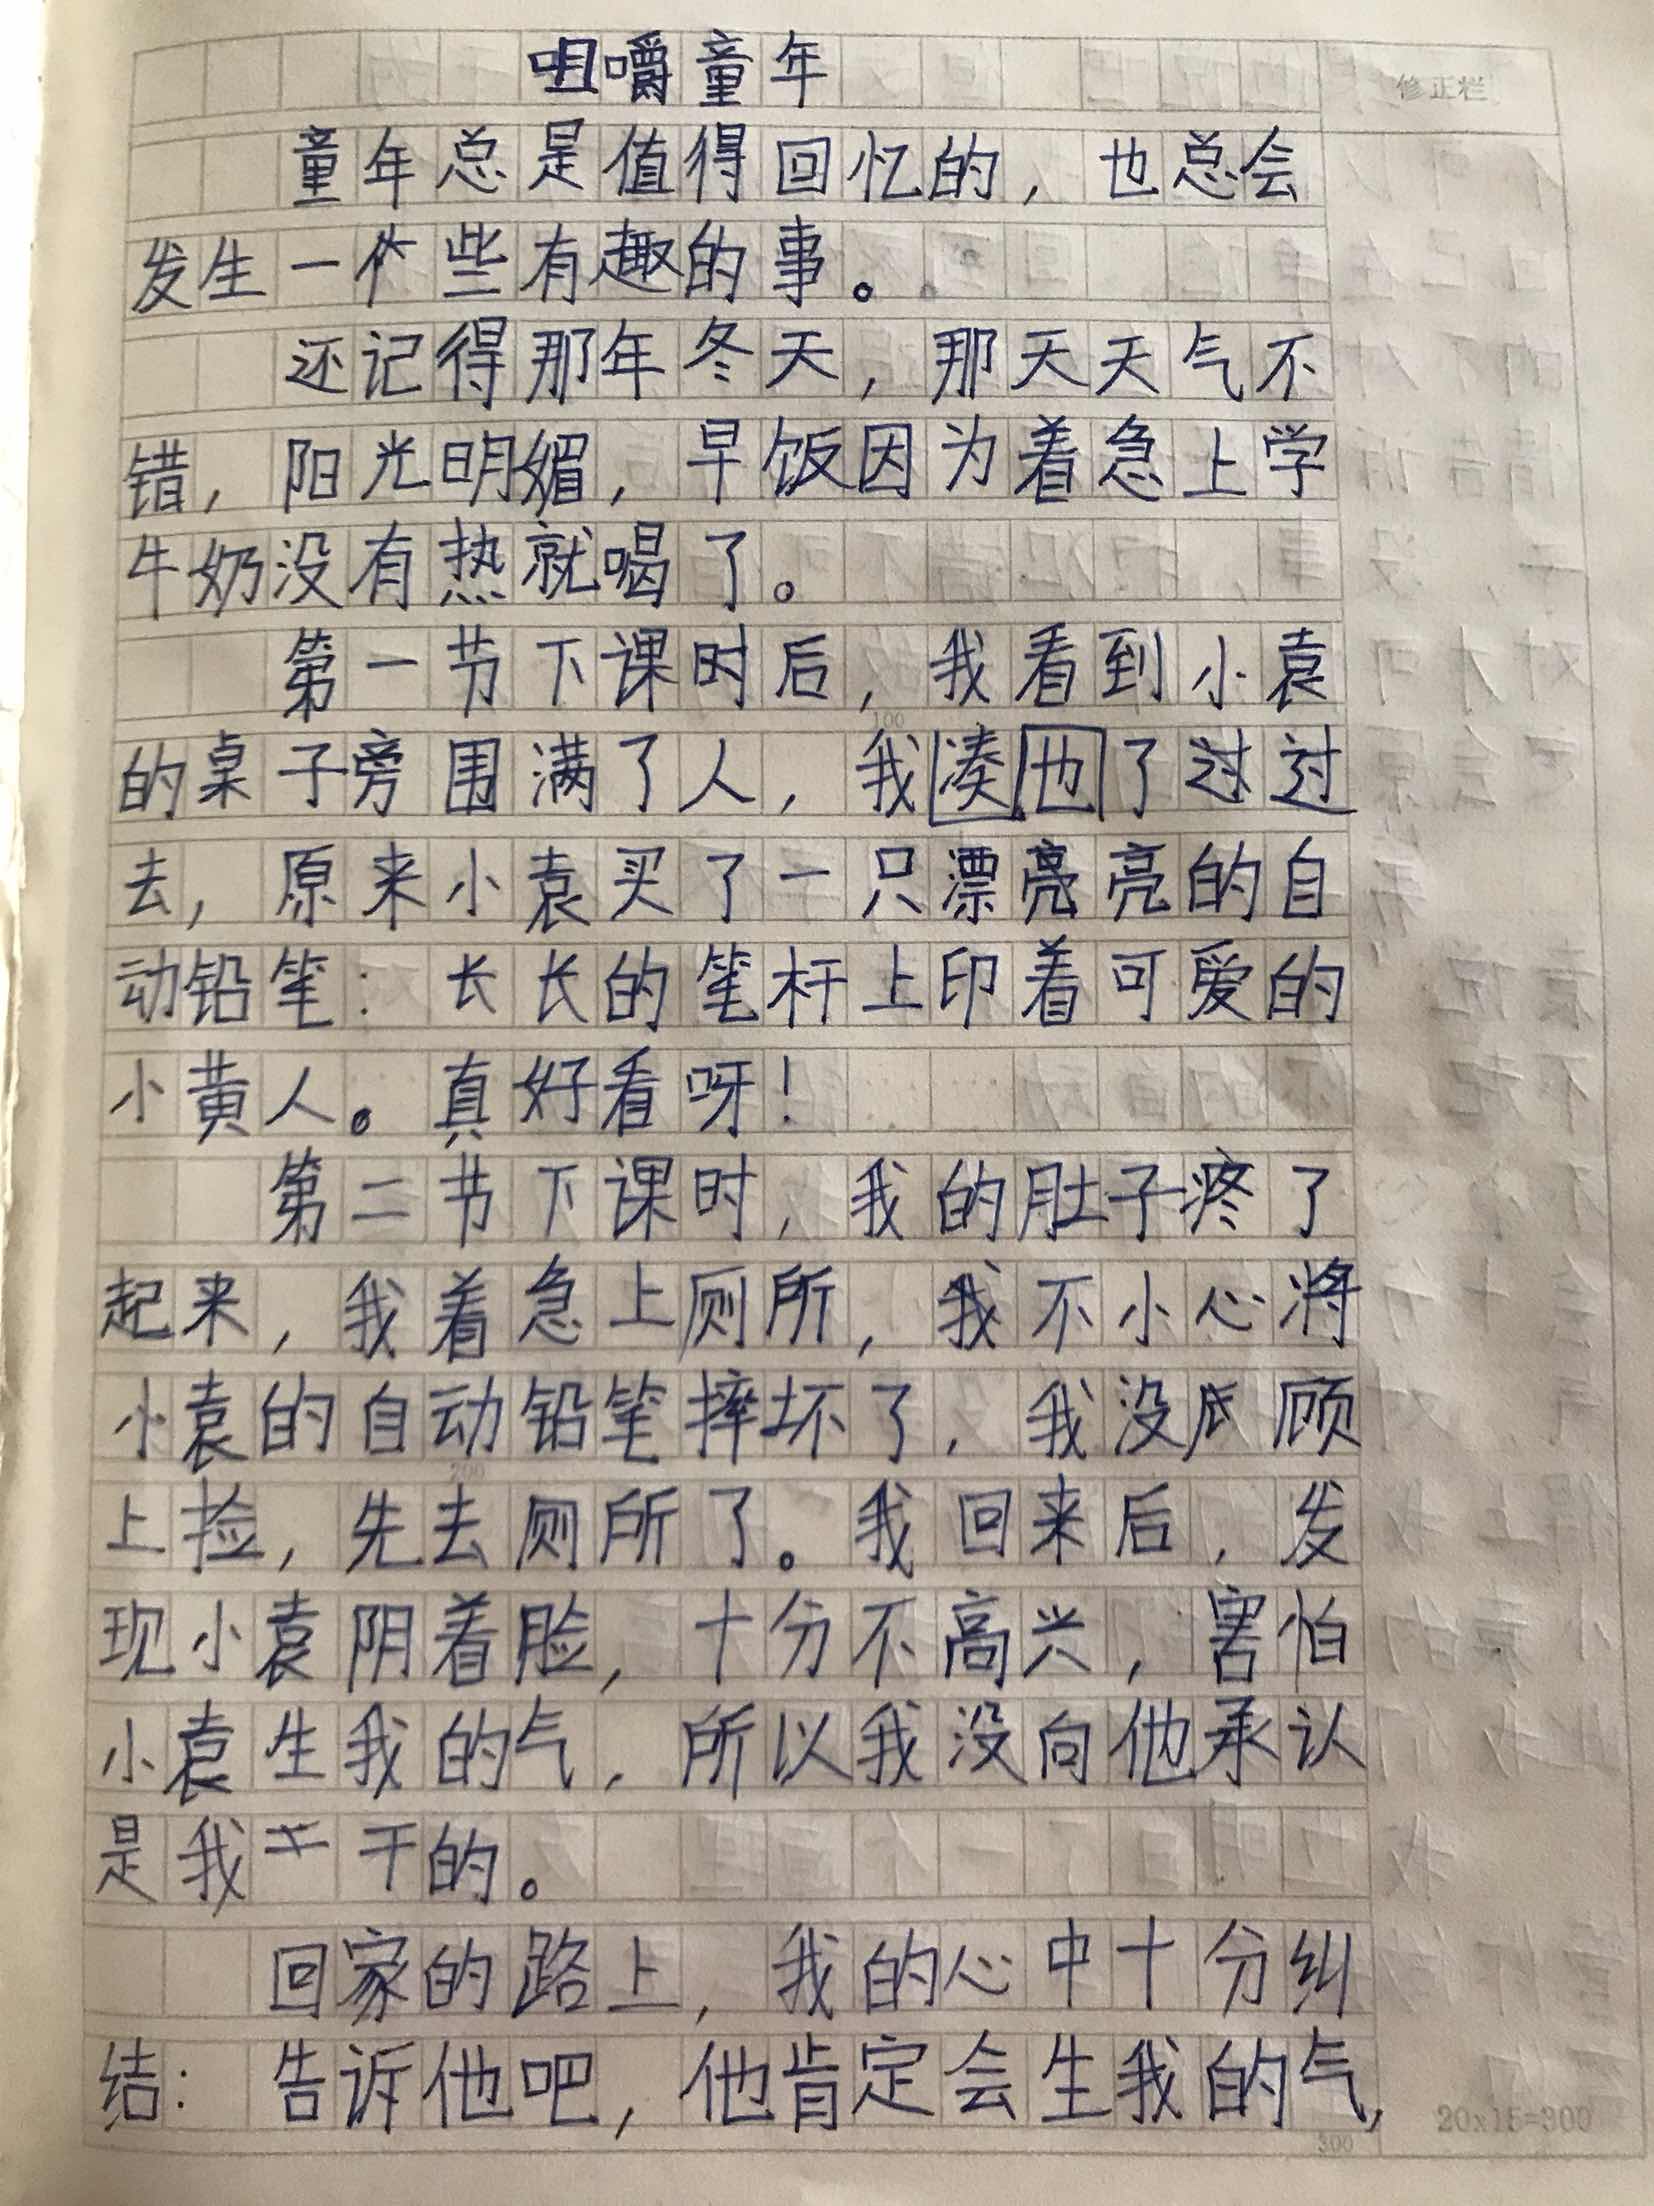 咀嚼童年
修正栏
童年总是值得回忆的，也总会
发生一些有趣的事。
还记得那年冬天，那天天气不
错，阳光明媚，早饭因为着急上学
牛奶没有热就喝了。
第一节下课时后，我看到小袁
的桌子旁围满了人，我凑也了过过
去，原来小袁买了一只漂亮亮的自
动铅笔：长长的笔杆上印着可爱的
小黄人。真好看呀！
第二节下课时，我的肚子疼了
起来，我着急上厕所，我不小心将
小袁的自动铅笔摔坏了，我没顾
上捡，先去厕所了。我回来后，发
现小袁阴着脸，十分不高兴，害怕
小袁生我的气，所以我没向他承认
是我干的。
回家的路上，我的心中十分纠
结：告诉他吧，他肯定会生我的气，
300
20x15=300